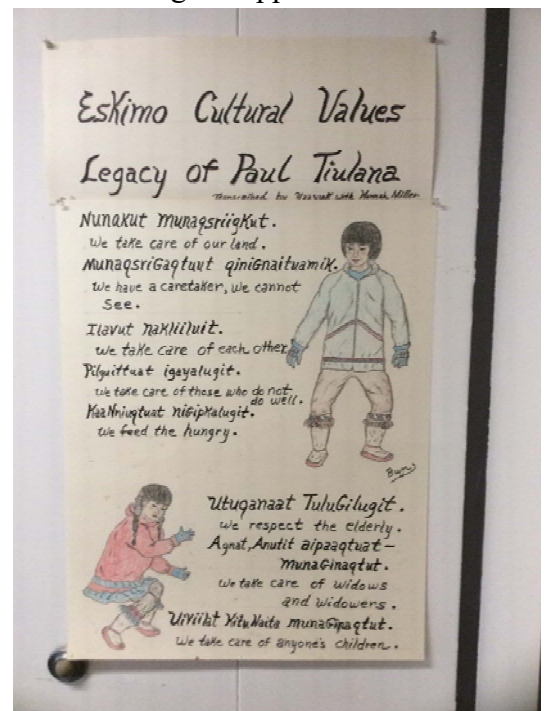 Eskimo Cultural Values
Legacy of Paul Tiulana
Transcribed by with Hannah Miller
Nunakut munaqsriigkut.
We take care of our land.
MunaqsriGaqtuut qiniGnaituamik.
We have a caretaker, we cannot
See.
Ilavut nakliiluit.
We take care of each other
Pilguittuat igayalugit.
We take care of those who do not
do well.
KaaNniuqtuat niGipkalugit.
We feed the hungry.
Burns
Utuqanaat TuluGilugit.
We respect the elderly.
Agnat, Anutit aipaaqtuat-
munaGinaqtut.
We take care of widows
and widowers.
Uiviilat KituNaita munaGipaqtut.
We take care of anyone's children.